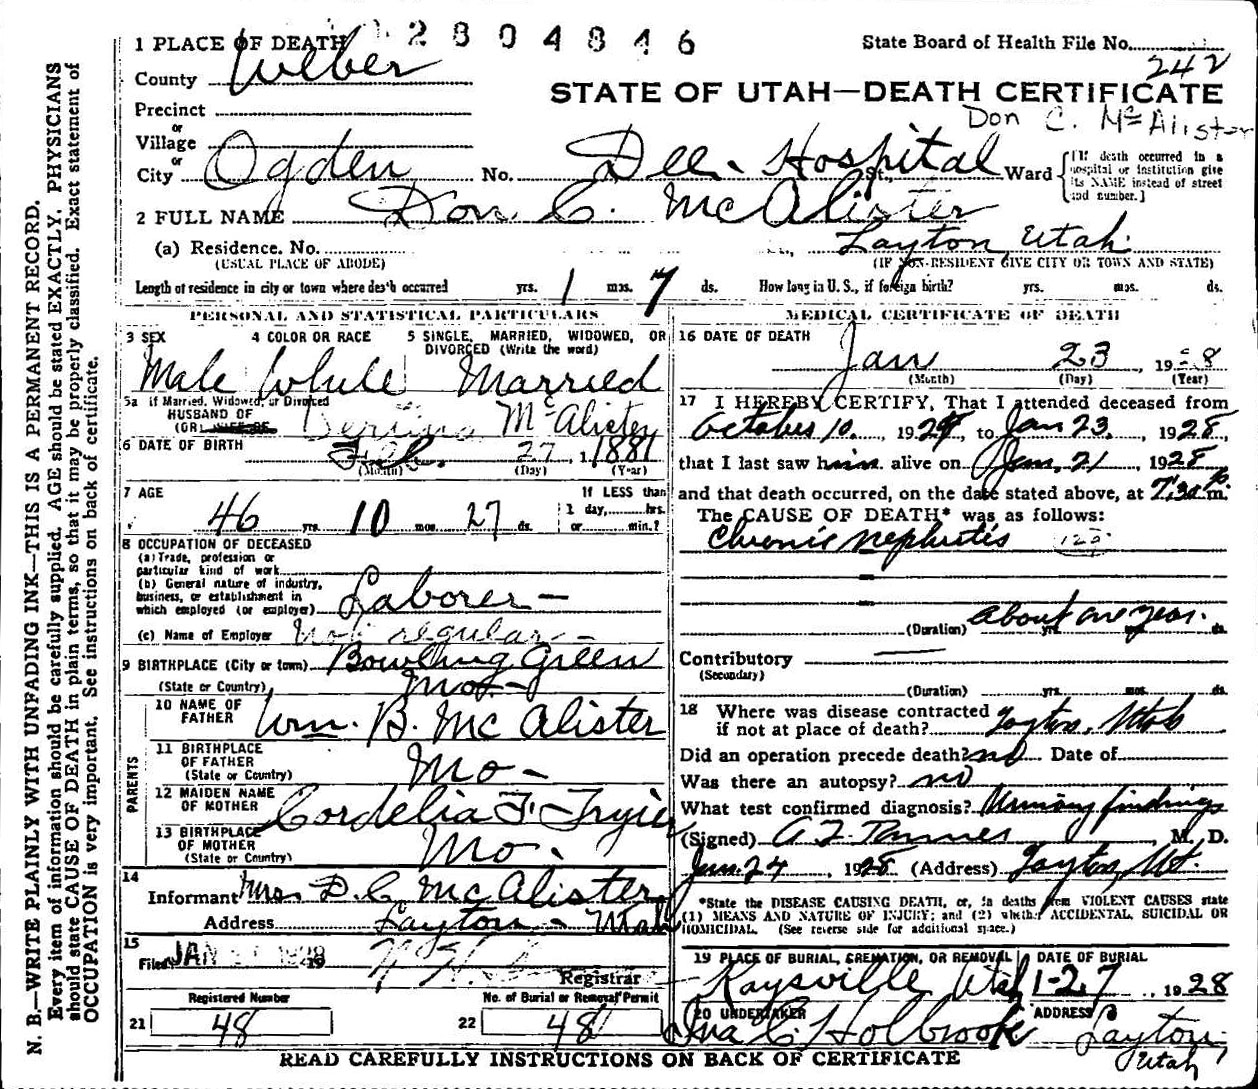 2804846
1 PLACE OF DEATH
State Board of Health File No.
242
County Weber
STATE OF UTAH—DEATH CERTIFICATE
Precinct
Don C. McAlister
or
Village
or
City Ogden No. Dee Hospital St., Ward
[If death occurred in a hospital or institution give its NAME instead of street and number.]
2 FULL NAME Don C. McAlister
(a) Residence. No. St., Layton, Utah
(USUAL PLACE OF ABODE) (IF NON-RESIDENT GIVE CITY OR TOWN AND STATE)
Length of residence in city or town where death occurred yrs. 1 mos. 7 ds. How long in U. S., if foreign birth? yrs. mos. ds.
PERSONAL AND STATISTICAL PARTICULARS
3 SEX 4 COLOR OR RACE 5 SINGLE, MARRIED, WIDOWED, OR
DIVORCED (Write the word)
Male White Married
5a If Married, Widowed, or Divorced
HUSBAND OF
(OR) WIFE OF McAlister
6 DATE OF BIRTH Feb. 27 1881
(Month) (Day) (Year)
7 AGE If LESS than
46 yrs. 10 mos. 27 ds. 1 day, hrs.
or min.?
8 OCCUPATION OF DECEASED
(a) Trade, profession or
particular kind of work
(b) General nature of industry,
business, or establishment in
which employed (or employer) Laborer —
(c) Name of Employer Not regular —
9 BIRTHPLACE (City or town) Bowling Green
(State or Country) Mo —
PARENTS
10 NAME OF
FATHER Wm. B. McAlister
11 BIRTHPLACE
OF FATHER
(State or Country) Mo —
12 MAIDEN NAME
OF MOTHER Cordelia F.
13 BIRTHPLACE
OF MOTHER
(State or Country) Mo.
14
Informant Mrs. D. C. McAlister
Address Layton - Utah
15
Filed JAN 1928 19
Registrar
Registered Number No. of Burial or Removal Permit
21 48 22 48
MEDICAL CERTIFICATE OF DEATH
16 DATE OF DEATH
Jan 23, 1928
(Month) (Day) (Year)
17 I HEREBY CERTIFY, That I attended deceased from
October 10, 1927 to Jan 23, 1928
that I last saw him alive on Jan. 21, 1928
and that death occurred, on the date stated above, at 7:30 p.m.
The CAUSE OF DEATH* was as follows:
Chronic nephritis 129
(Duration) about one year. yrs. ds.
Contributory
(Secondary)
(Duration) yrs. mos. ds.
18 Where was disease contracted
if not at place of death? Layton, Utah
Did an operation precede death? no Date of
Was there an autopsy? no
What test confirmed diagnosis? Urinary findings
(Signed) A. Z. Tanner, M. D.
Jan. 24, 1928 (Address) Layton, Ut.
*State the DISEASE CAUSING DEATH, or, in deaths from VIOLENT CAUSES state
(1) MEANS AND NATURE OF INJURY; and (2) whether ACCIDENTAL, SUICIDAL OR
HOMICIDAL. (See reverse side for additional space.)
19 PLACE OF BURIAL, CREMATION, OR REMOVAL DATE OF BURIAL
Kaysville Utah 1-27, 1928
20 UNDERTAKER ADDRESS
Ina C. Holbrook Layton, Utah
READ CAREFULLY INSTRUCTIONS ON BACK OF CERTIFICATE
N. B.—WRITE PLAINLY WITH UNFADING INK—THIS IS A PERMANENT RECORD.
Every item of information should be carefully supplied. AGE should be stated EXACTLY. PHYSICIANS
should state CAUSE OF DEATH in plain terms, so that it may be properly classified. Exact statement of
OCCUPATION is very important. See instructions on back of certificate.